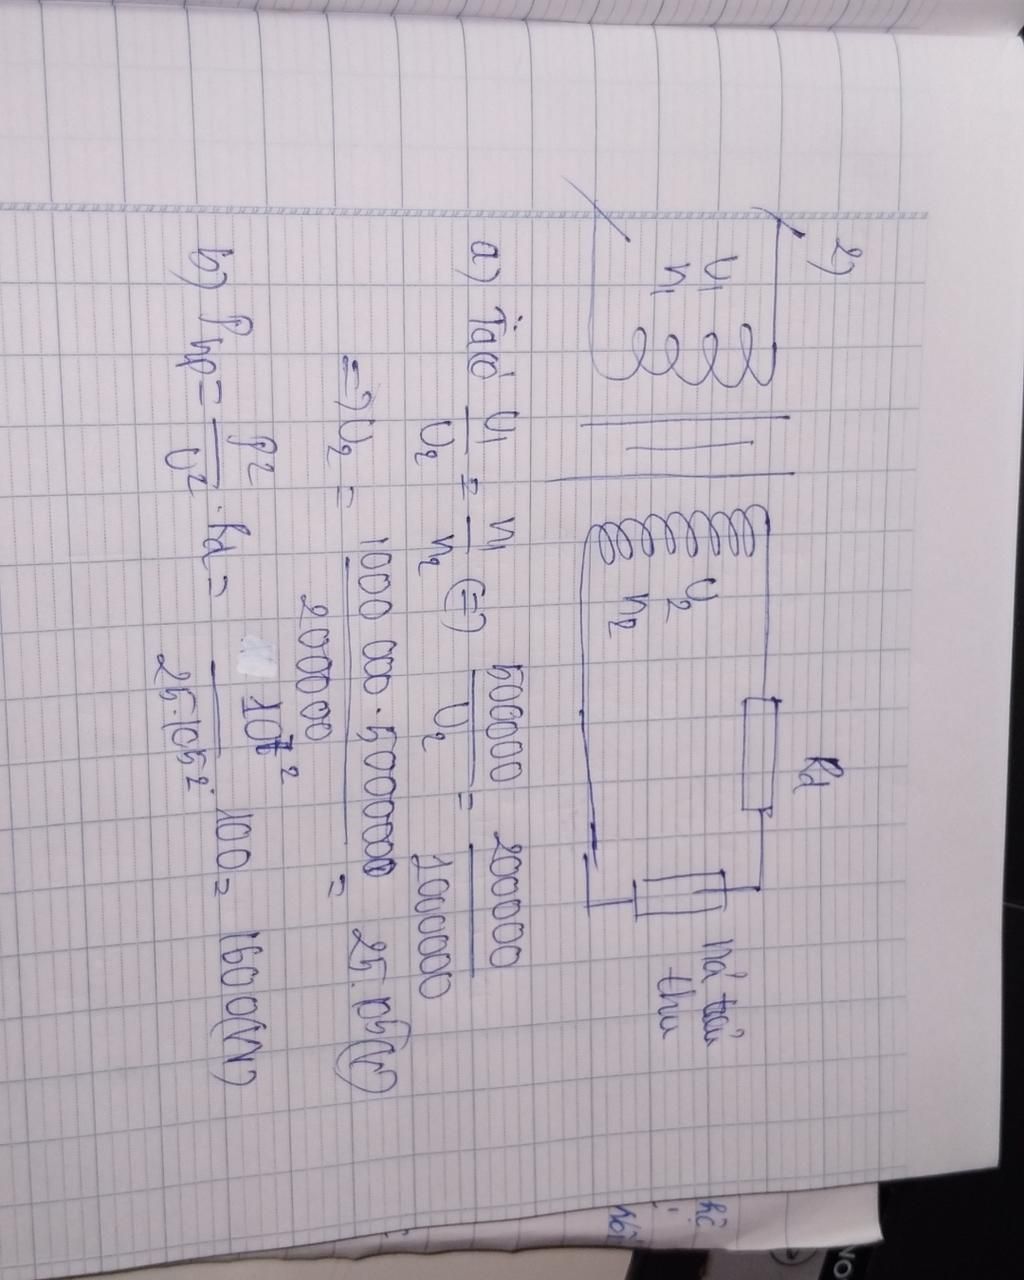 2)
Rd
U1
n1
U2
n2
tiêu
thu
a) Ta có U1/U2 = n1/n2 (=) 500000/U2 = 200000/1000000
=) U2 = 1000 000 . 5000000/200000 = 25.10⁵(V)
b) Php = P²/U² . Rd = /25.10⁵² . 100 = 1600(W)